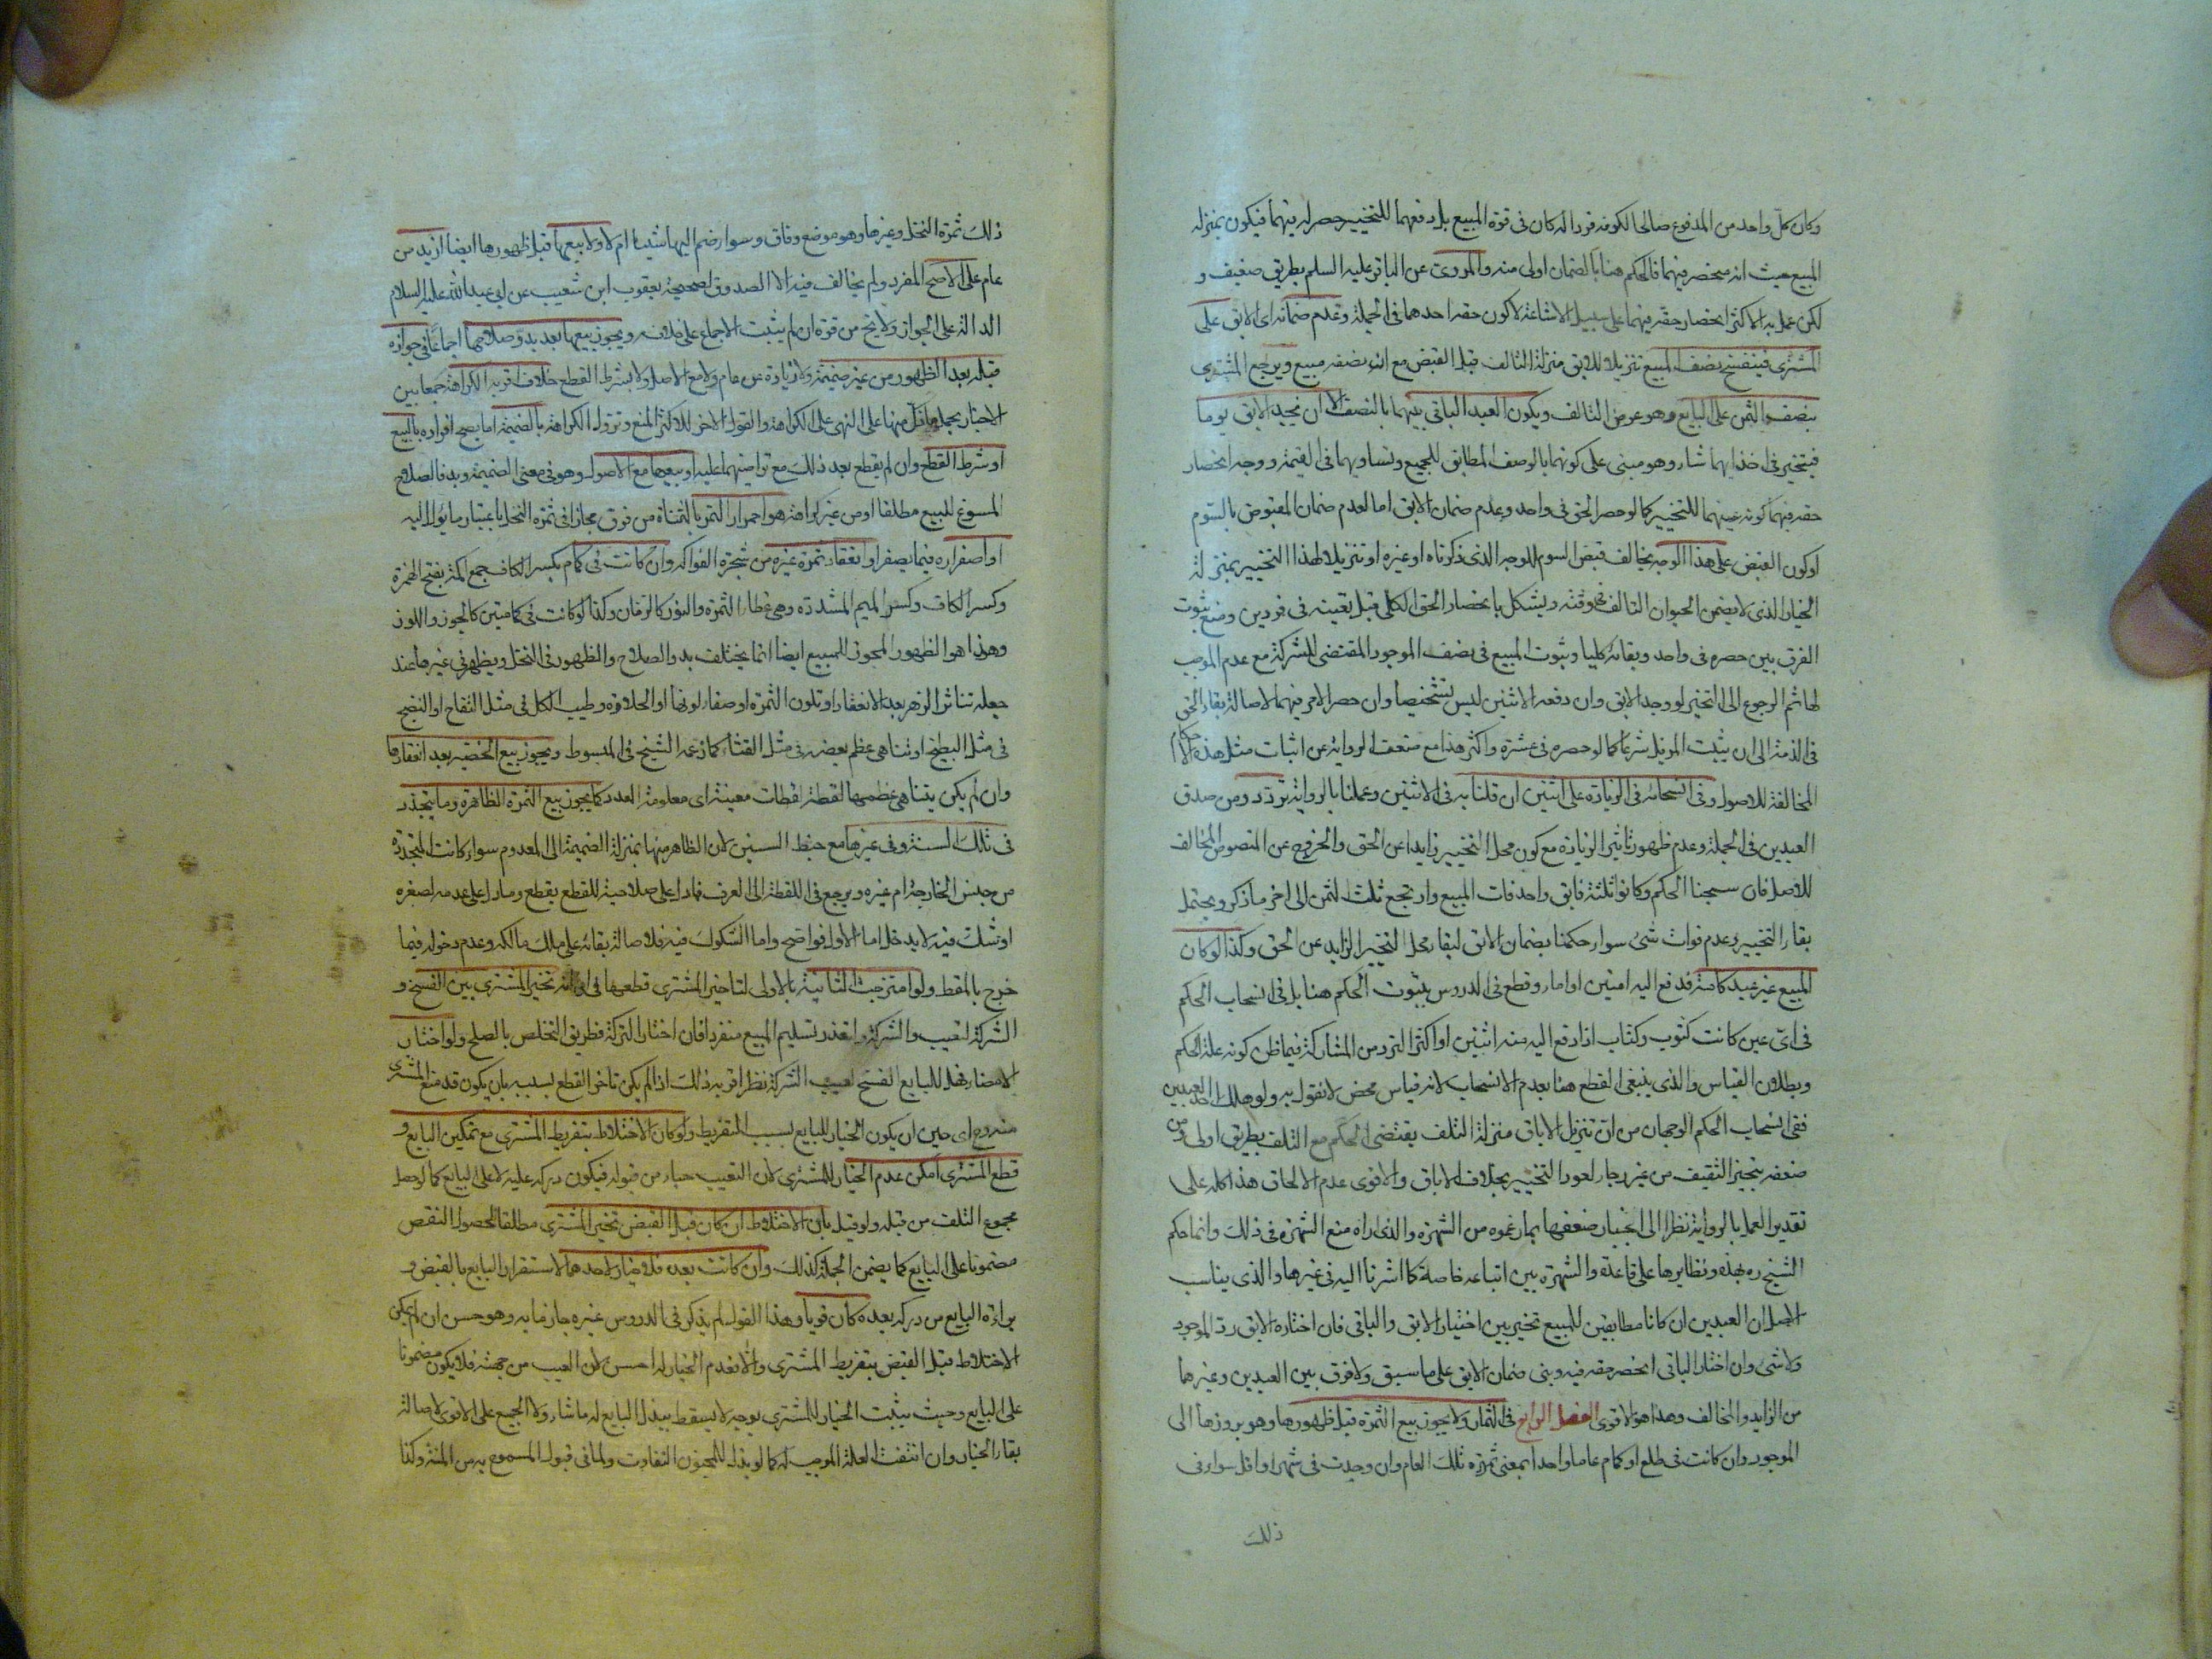 وكان كل واحد من المدفوع صالحا لكونه فردا له كان في قوة المبيع بل دفعهما للتخيير حصر له فيهما فيكون بمنزله
المبيع حيث انه منحصر فيهما فالحكم هنا بالضمان اولى منه والمروى عن الباقر عليه السلم بطريق ضعيف و
لكن عمل به الاكثر انحصار حقه فيهما على سبيل الاشاعة لا كون حقه احدهما في الجملة وعدم ضمانه اى الابق على
المشترى فينفسخ نصف المبيع تنزيلا للابق منزلة التالف قبل القبض مع ان نصفه مبيع ويرجع المشترى
بنصف الثمن على البايع وهو عوض التالف ويكون العبد الباقى بينهما بالنصف الا ان يجد الابق يوما
فيتخير في اخذ ايهما شاء وهو مبنى على كونهما بالوصف المطابق للمبيع وتساويهما في القيمة ووجه انحصار
حقه فيهما كونه عينهما للتخيير كما لو حصر الحق في واحد وعدم ضمان الابق اما لعدم ضمان المقبوض بالسوم
او كون القبض على هذا الوجه يخالف قبض السوم للوجه الذى ذكرناه او غيره او تنزيلا لهذا التخيير بمنزلة
الخيار الذى لا يضمن الحيوان التالف في وقته ويشكل بانحصار الحق الكلى قبل تعينه في فردين ومنع ثبوت
الفرق بين حصره في واحد وبقائه كليا وثبوت المبيع في نصف الموجود المقتضى للشركة مع عدم الموجب
لها ثم الرجوع الى التخير لو وجد الابق وان دفعه الاثنين ليس تشخيصا وان حصر الامر فيهما لاصالة بقاء الحق
في الذمة الى ان يثبت المزيل شرعا كما لو حصره في عشرة واكثر هذا مع ضعف الرواية عن اثبات مثل هذه الاحكام
المخالفة للاصول وفي انسحابه في الزيادة على اثنين ان قلنا به في الاثنين وعملنا بالرواية تردد ومن صدق
العبدين في الجملة وعدم ظهور تاثير الزيادة مع كون محل التخيير زايدا عن الحق والخروج عن المنصوص المخالف
للاصل فان سحبنا الحكم وكانوا ثلثة فابق واحد فات المبيع وارتجع ثلث الثمن الى اخر ما ذكر ويحتمل
بقاء التخيير وعدم فوات شئ سواء حكمنا بضمان الابق لبقاء محل التخيير الزايد عن الحق وكذا لو كان
المبيع غير عبد كامة فدفع اليه امتين او اماء وقطع في الدروس بثبوت الحكم هنا بل في انسحاب الحكم
في اى عين كانت كثوب وكتاب اذا دفع اليه منه اثنين او اكثر التردد من المشاركة فيما ظن كونه علة الحكم
وبطلان القياس والذى ينبغى القطع هنا بعدم الانسحاب لانه قياس محض لا نقول به ولو هلك احد العبدين
ففى انسحاب الحكم الوجهان من ان تنزيل الاباق منزلة التلف يقتضى الحكم مع التلف بطريق اولى ومن
ضعفه بتنجيز التنقيف من غير رجاء لعود التخيير بخلاف الاباق والاقوى عدم الالحاق هذا كله على
تقدير العمل بالرواية نظرا الى انجبار ضعفها بما زعموه من الشهرة والذى اراه منع الشهرة في ذلك وانما حكم
الشيخ ره بهذه ونظايرها على قاعدته والشهرة بين اتباعه خاصة كما اشرنا اليه في غيرها والذى يناسب
الاصل ان العبدين ان كانا مطابقين للمبيع تخير بين اختيار الابق والباقى فان اختار الابق رد الموجود
ولا شئ وان اختار الباقى انحصر حقه فيه وبنى ضمان الابق على ما سبق ولا فرق بين العبدين وغيرهما
من الزايد والمخالف وهذا هو الاقوى الفصل الرابع في الثمار ولا يجوز بيع الثمرة قبل ظهورها وهو بروزها الى
الموجود وان كانت في طلع او كمام عاما واحدا بمعنى ثمرة تلك العام وان وجدت في شهر او اقل سواء في
ذلك
ذلك ثمرة النخل وغيرها وهو موضع وفاق وسواء ضم اليها شيئا ام لا ولا بيعها قبل ظهورها ايضا ازيد من
عام على الاصح المفرد ولم يخالف فيه الا الصدوق لصحيحة يعقوب ابن شعيب عن ابى عبد الله عليه السلام
الدالة على الجواز ولا يخ من قوة ان لم يثبت الاجماع على خلافه ويجوز بيعها بعد بدو صلاحها اجماعا في جوازه
قبله بعد الظهور من غير ضميمة ولا زيادة عن عام ولا مع الاصل ولا بشرط القطع خلاف اقربه الكراهة جمعا بين
الاخبار بحمل ما دل منها على النهى على الكراهة والقول الاخر للاكثر المنع وتزول الكراهة بالضميمة الى ما يصح افراده بالبيع
او شرط القطع وان لم يقطع بعد ذلك مع تراضيهما عليه او بيعها مع الاصول وهو في معنى الضميمة وبدو الصلاح
المسوغ للبيع مطلقا او من غير كراهة هو احمرار التمر بالمثناة من فوق مجازا في ثمرة النخل باعتبار ما يؤل اليه
او اصفراره فيما يصفر او انعقاد ثمرة غيره من شجرة الفواكه وان كانت في كمام بكسر الكاف جمع اكمة بفتح الهمزة
وكسر الكاف وكسر الميم المشددة وهى غطاء الثمرة والنور كالرمان وكذا لو كانت في كمامين كالجوز واللوز
وهذا هو الظهور المجوز للمبيع ايضا انما يختلف بدو الصلاح والظهور في النخل ويظهر في غيرها عند
جعله تناثر الزهر بعد الانعقاد او تلون الثمرة او صفاء لونها او الحلاوة وطيب الاكل في مثل التفاح او النضج
في مثل البطيخ او تناهى عظم بعضه في مثل القثاء كما زعمه الشيخ في المبسوط ويجوز بيع الخضر بعد انعقادها
وان لم يكن يتناهى عظمها لقطة ولقطات معينة اى معلومة العدد كما يجوز بيع الثمرة الظاهرة وما يتجدد
في تلك السنة وفي غيرها مع ضبط السنين لان الظاهر منها بمنزلة الضميمة الى المعدوم سواء كانت المتجددة
من جنس الخارجة ام غيره ويرجع في اللقطة الى العرف فما دل على صلاحية للقطع يقطع وما دل على عدمه لصغره
او شك فيه لا يدخل اما الاول فواضح واما المشكوك فيه فلاصالة بقائه على ملك مالكه وعدم دخوله فيما
خرج باللقط ولو امتزجت الثانية بالاولى لتاخير المشترى قطعها في اوانه تخير المشترى بين الفسخ و
الشركة لتعيب والشركة ولتعذر تسليم المبيع منفردا فان اختار الشركة فطريق التخلص بالصلح ولو اختار
الامضاء فهل للبايع الفسخ لعيب الشركة نظر اقربه ذلك اذا لم يكن تاخر القطع بسببه بان يكون قد منع المشترى
منه وح اى حين ان يكون الخيار للبايع بسبب التفريط ولو كان الاختلاط بتفريط المشترى مع تمكين البايع و
قطع المشترى امكن عدم الخيار للمشترى لان التعييب جاء من قبله فيكون دركه عليه لا على البايع كما لو حصل
مجموع التلف من قبله ولو قيل بان الاختلاط ان كان قبل القبض تخير المشترى مطلقا لحصول النقص
مضمونا على البايع كما يضمن الجملة كذلك وان كانت بعده فلا خيار لاحدهما لاستقرار البايع بالقبض و
براءة البايع من دركه بعده كان قويا وهذا القول لم يذكره في الدروس غيره جازما به وهو حسن ان لم يكن
الاختلاط قبل القبض بتفريط المشترى والا فعدم الخيار له احسن لان العيب من جهته فلا يكون مضمونا
على البايع وحيث يثبت الخيار للمشترى بوجه لا يسقط ببذل البايع له ما شاء ولا الجميع على الاقوى لاصالة
بقاء الخيار وان انتفت العلة الموجبة له كما لو بذل للمغبون التفاوت ولما في قبول المسموح به من المنة وكذا